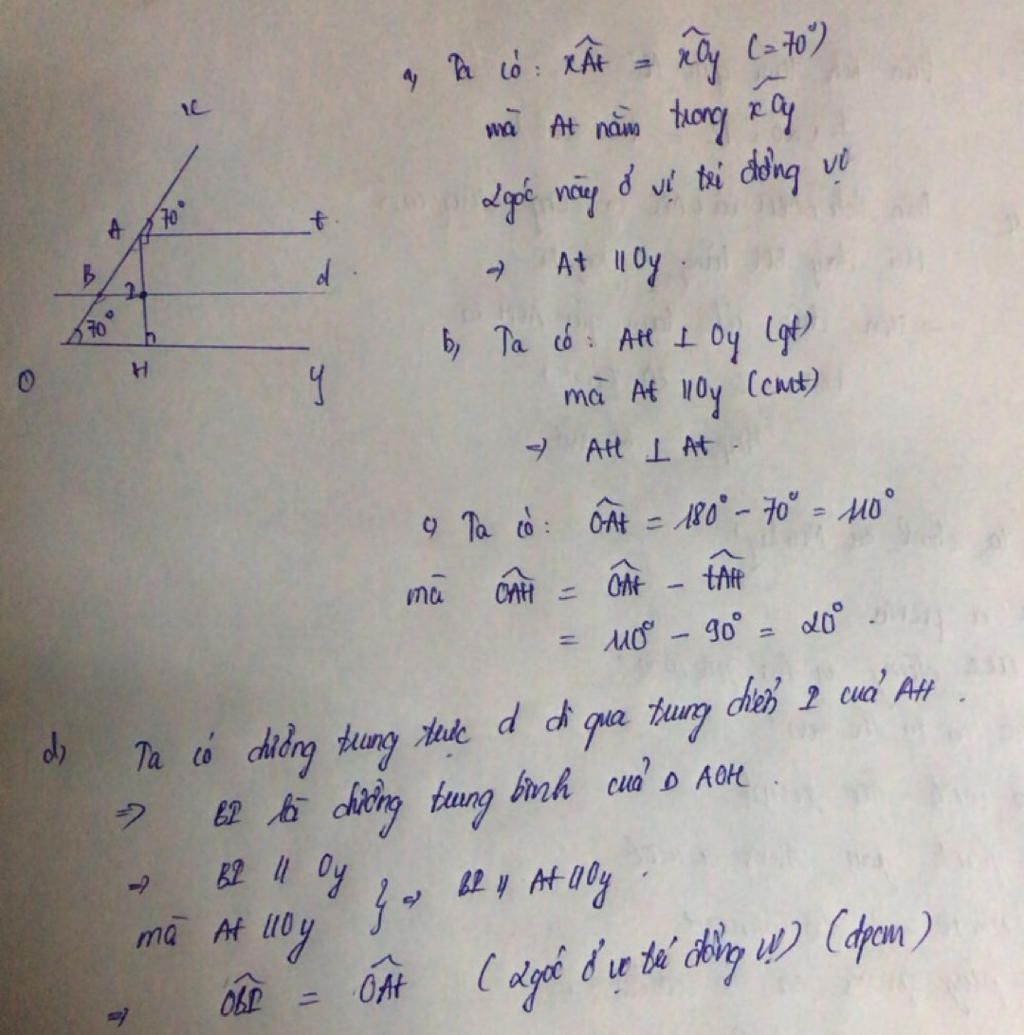 x
A 70° t
B I d
70°
O H y
a, Ta có: xÂt = xÔy (=70°)
mà At nằm trong xÔy
2 góc này ở vị trí đồng vị
=> At // Oy.
b, Ta có: AH ⊥ Oy (gt)
mà At // Oy (cmt)
=> AH ⊥ At.
c, Ta có: OÂt = 180° - 70° = 110°
mà OÂH = OÂt - tÂH
= 110° - 90° = 20°.
d, Ta có đường trung trực d đi qua trung điểm I của AH.
=> BI là đường trung bình của Δ AOH.
=> BI // Oy
mà At // Oy } => BI // At // Oy.
=> OB̂I = OÂt (2 góc ở vị trí đồng vị) (đpcm)